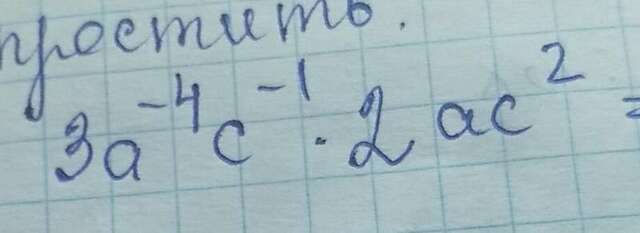 простить.
3a⁻⁴c⁻¹ · 2ac² =